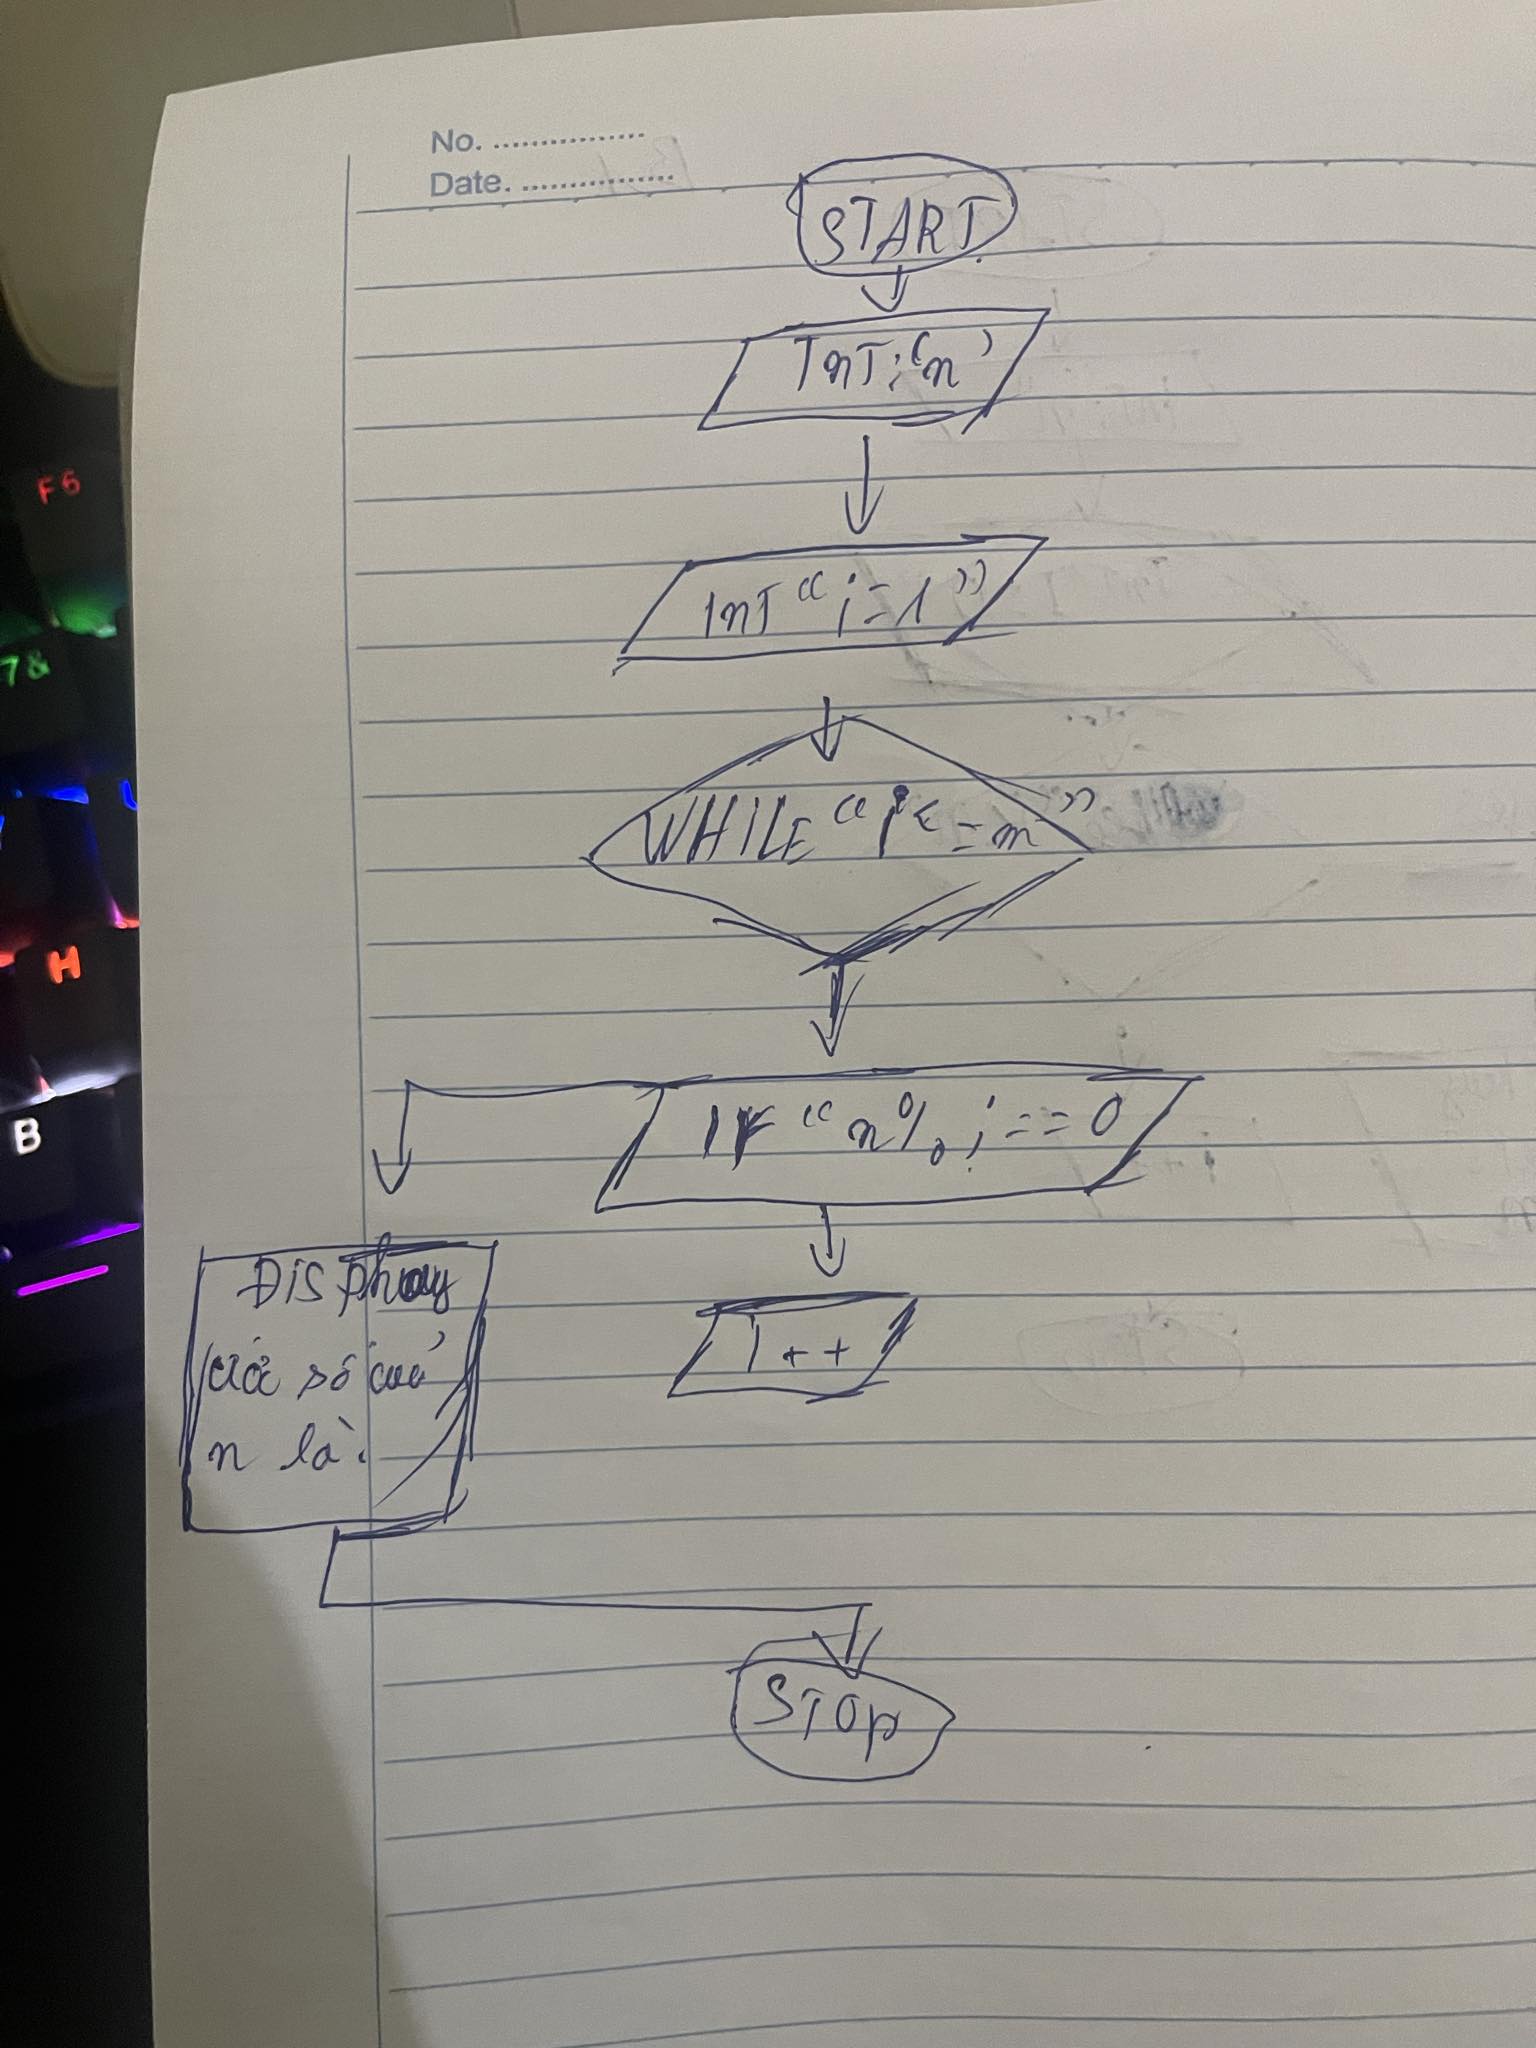 No. ................
Date. ................
START
InT; "n"
InT "i=1"
WHILE "i<=n"
IF "n%i==0
Display
ước số của
n là:
I++
STOP
F6
7&
U
H
B